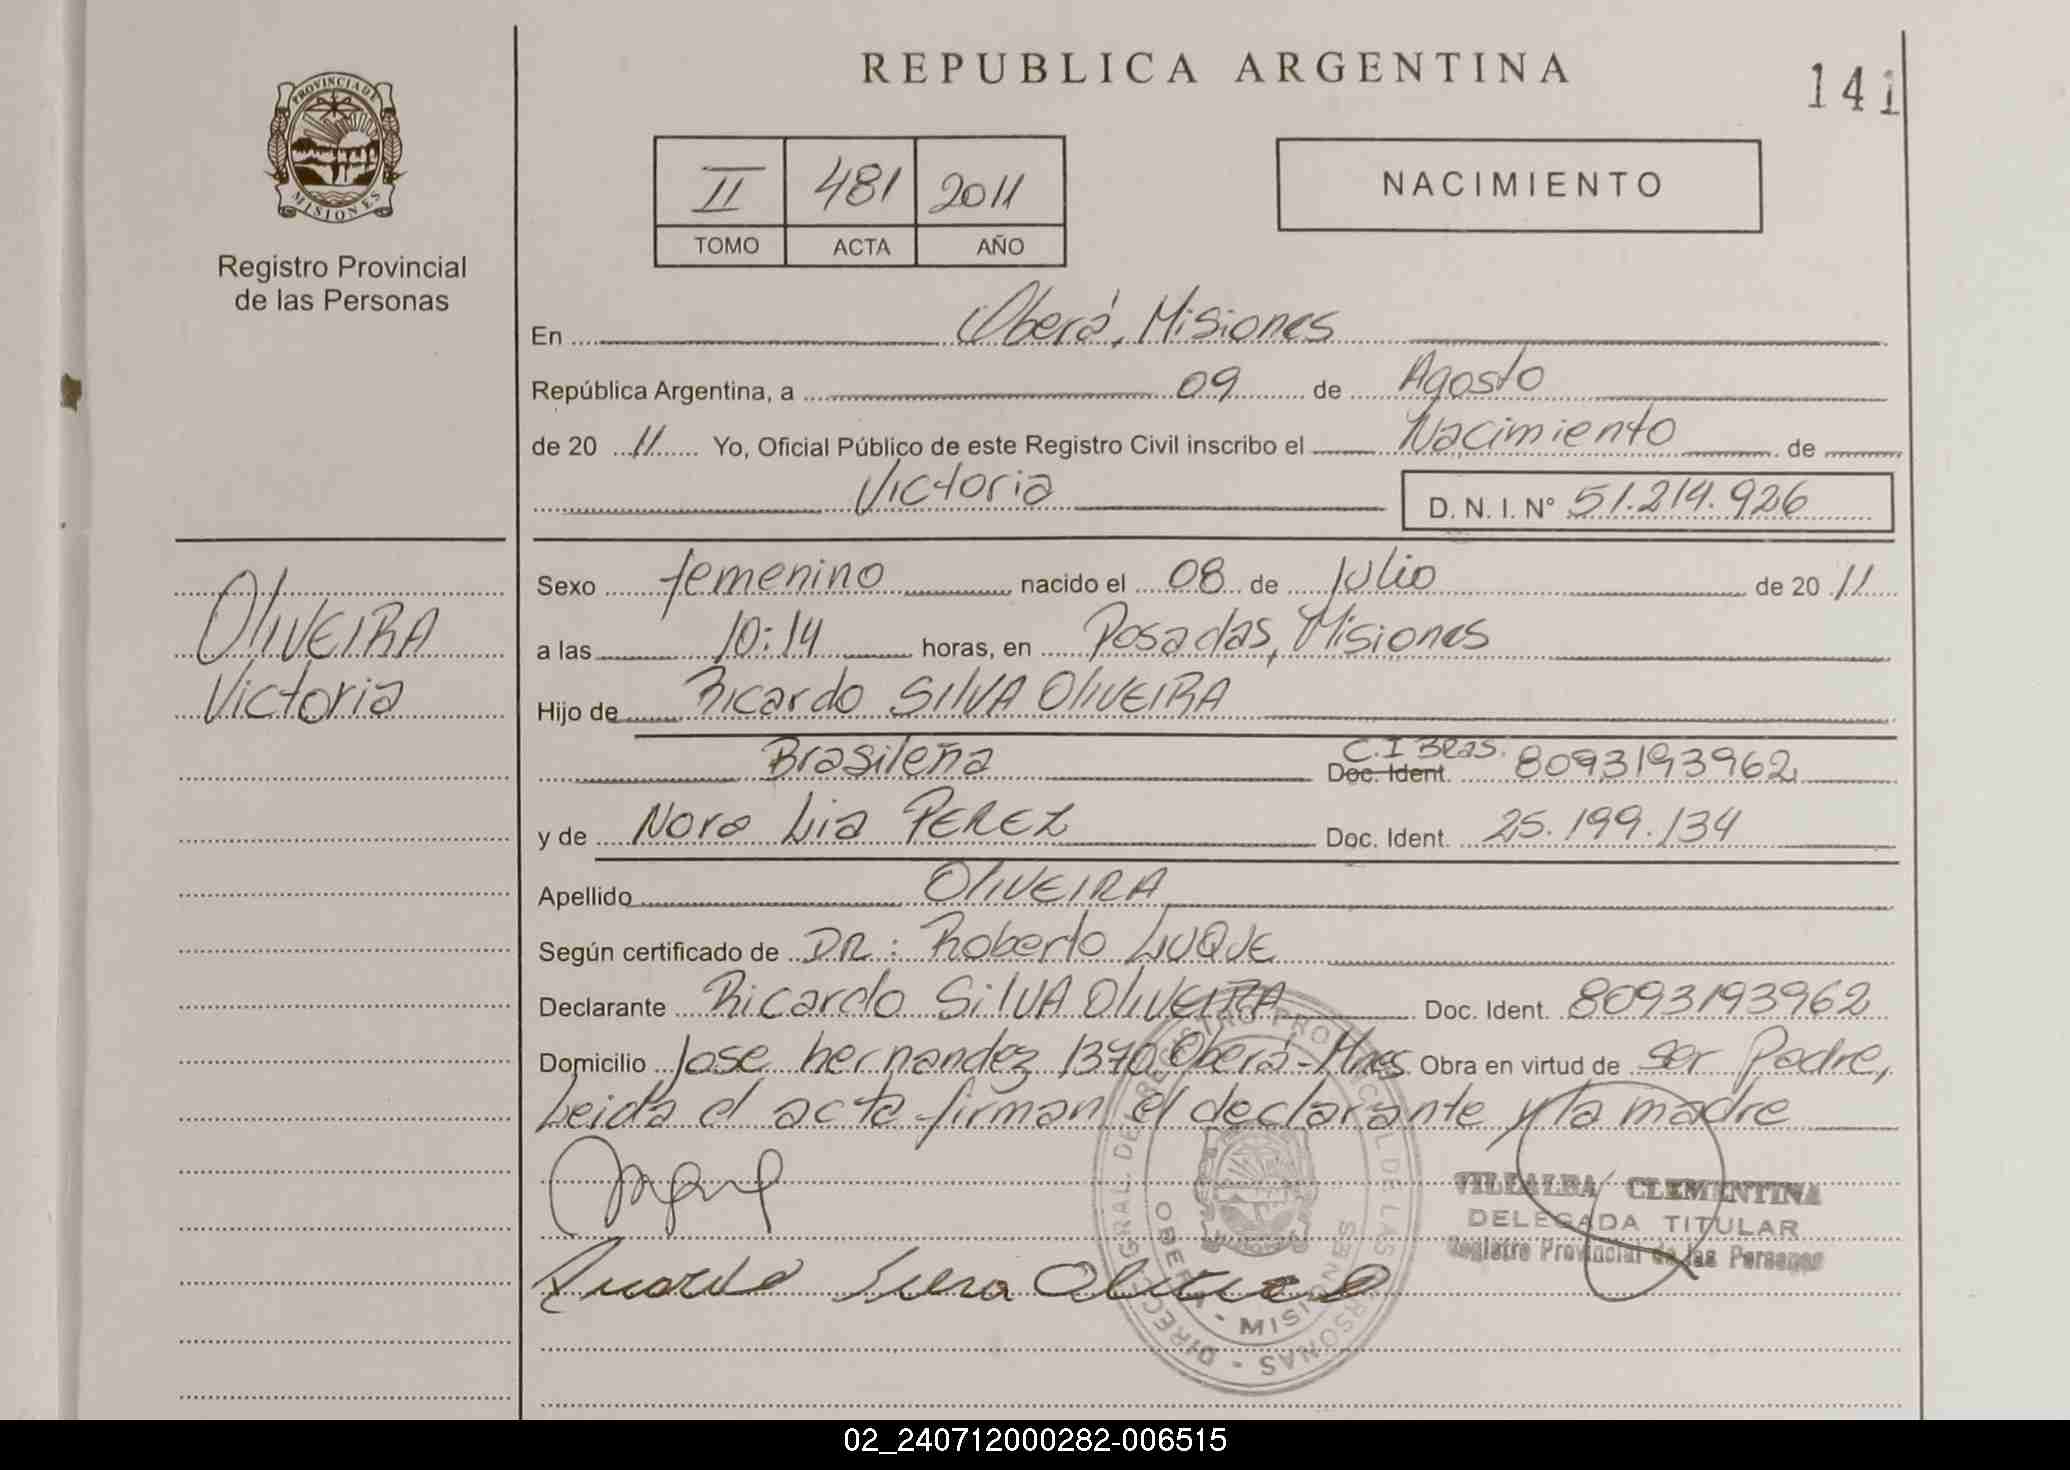 REPUBLICA ARGENTINA
141
PROVINCIA DE MISIONES
Registro Provincial
de las Personas
II 481 2011
TOMO ACTA AÑO
NACIMIENTO
En Oberá, Misiones
República Argentina, a 09 de Agosto
de 20 11 Yo, Oficial Público de este Registro Civil inscribo el Nacimiento de
Victoria D. N. I. N° 51.214.926
OLIVEIRA
Victoria
Sexo femenino nacido el 08 de Julio de 20 11
a las 10:14 horas, en Posadas, Misiones
Hijo de Ricardo SILVA OLIVEIRA
Brasileña C.I Bras. Doc. Ident. 8093193962
y de Nora Lia PEREZ Doc. Ident. 25.199.134
Apellido OLIVEIRA
Según certificado de DR: Roberto LUQUE
Declarante Ricardo SILVA OLIVEIRA Doc. Ident. 8093193962
Domicilio Jose hernandez 1370 Oberá-Mnes Obra en virtud de ser Padre,
Leida el acta firman el declarante y la madre
VILLALBA CLEMENTINA
DELEGADA TITULAR
Registro Provincial de las Personas
Ricardo Silva Oliveira
DIRECC. GRAL. DEL REGISTRO PROVINCIAL DE LAS PERSONAS
OBERA - MISIONES
02_240712000282-006515